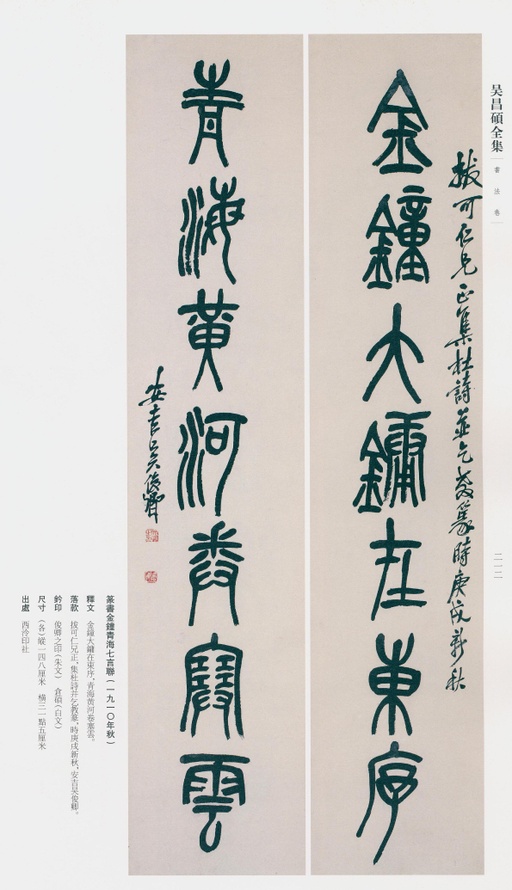 吴昌碩全集
書法卷
拔可仁兄正集杜詩並乞教篆時庚戌新秋
金鐘大鏞在東序
青海黃河卷塞雲
安吉吳俊卿
二一二
篆書金鐘青海七言聯（一九一〇年秋）
釋文　金鐘大鏞在東序，青海黃河卷塞雲。
落款　拔可仁兄正，集杜詩并乞教篆，時庚戌新秋，安吉吳俊卿。
鈐印　俊卿之印（朱文）　倉碩（白文）
尺寸　（各）縱一四八厘米　橫三一點五厘米
出處　西泠印社